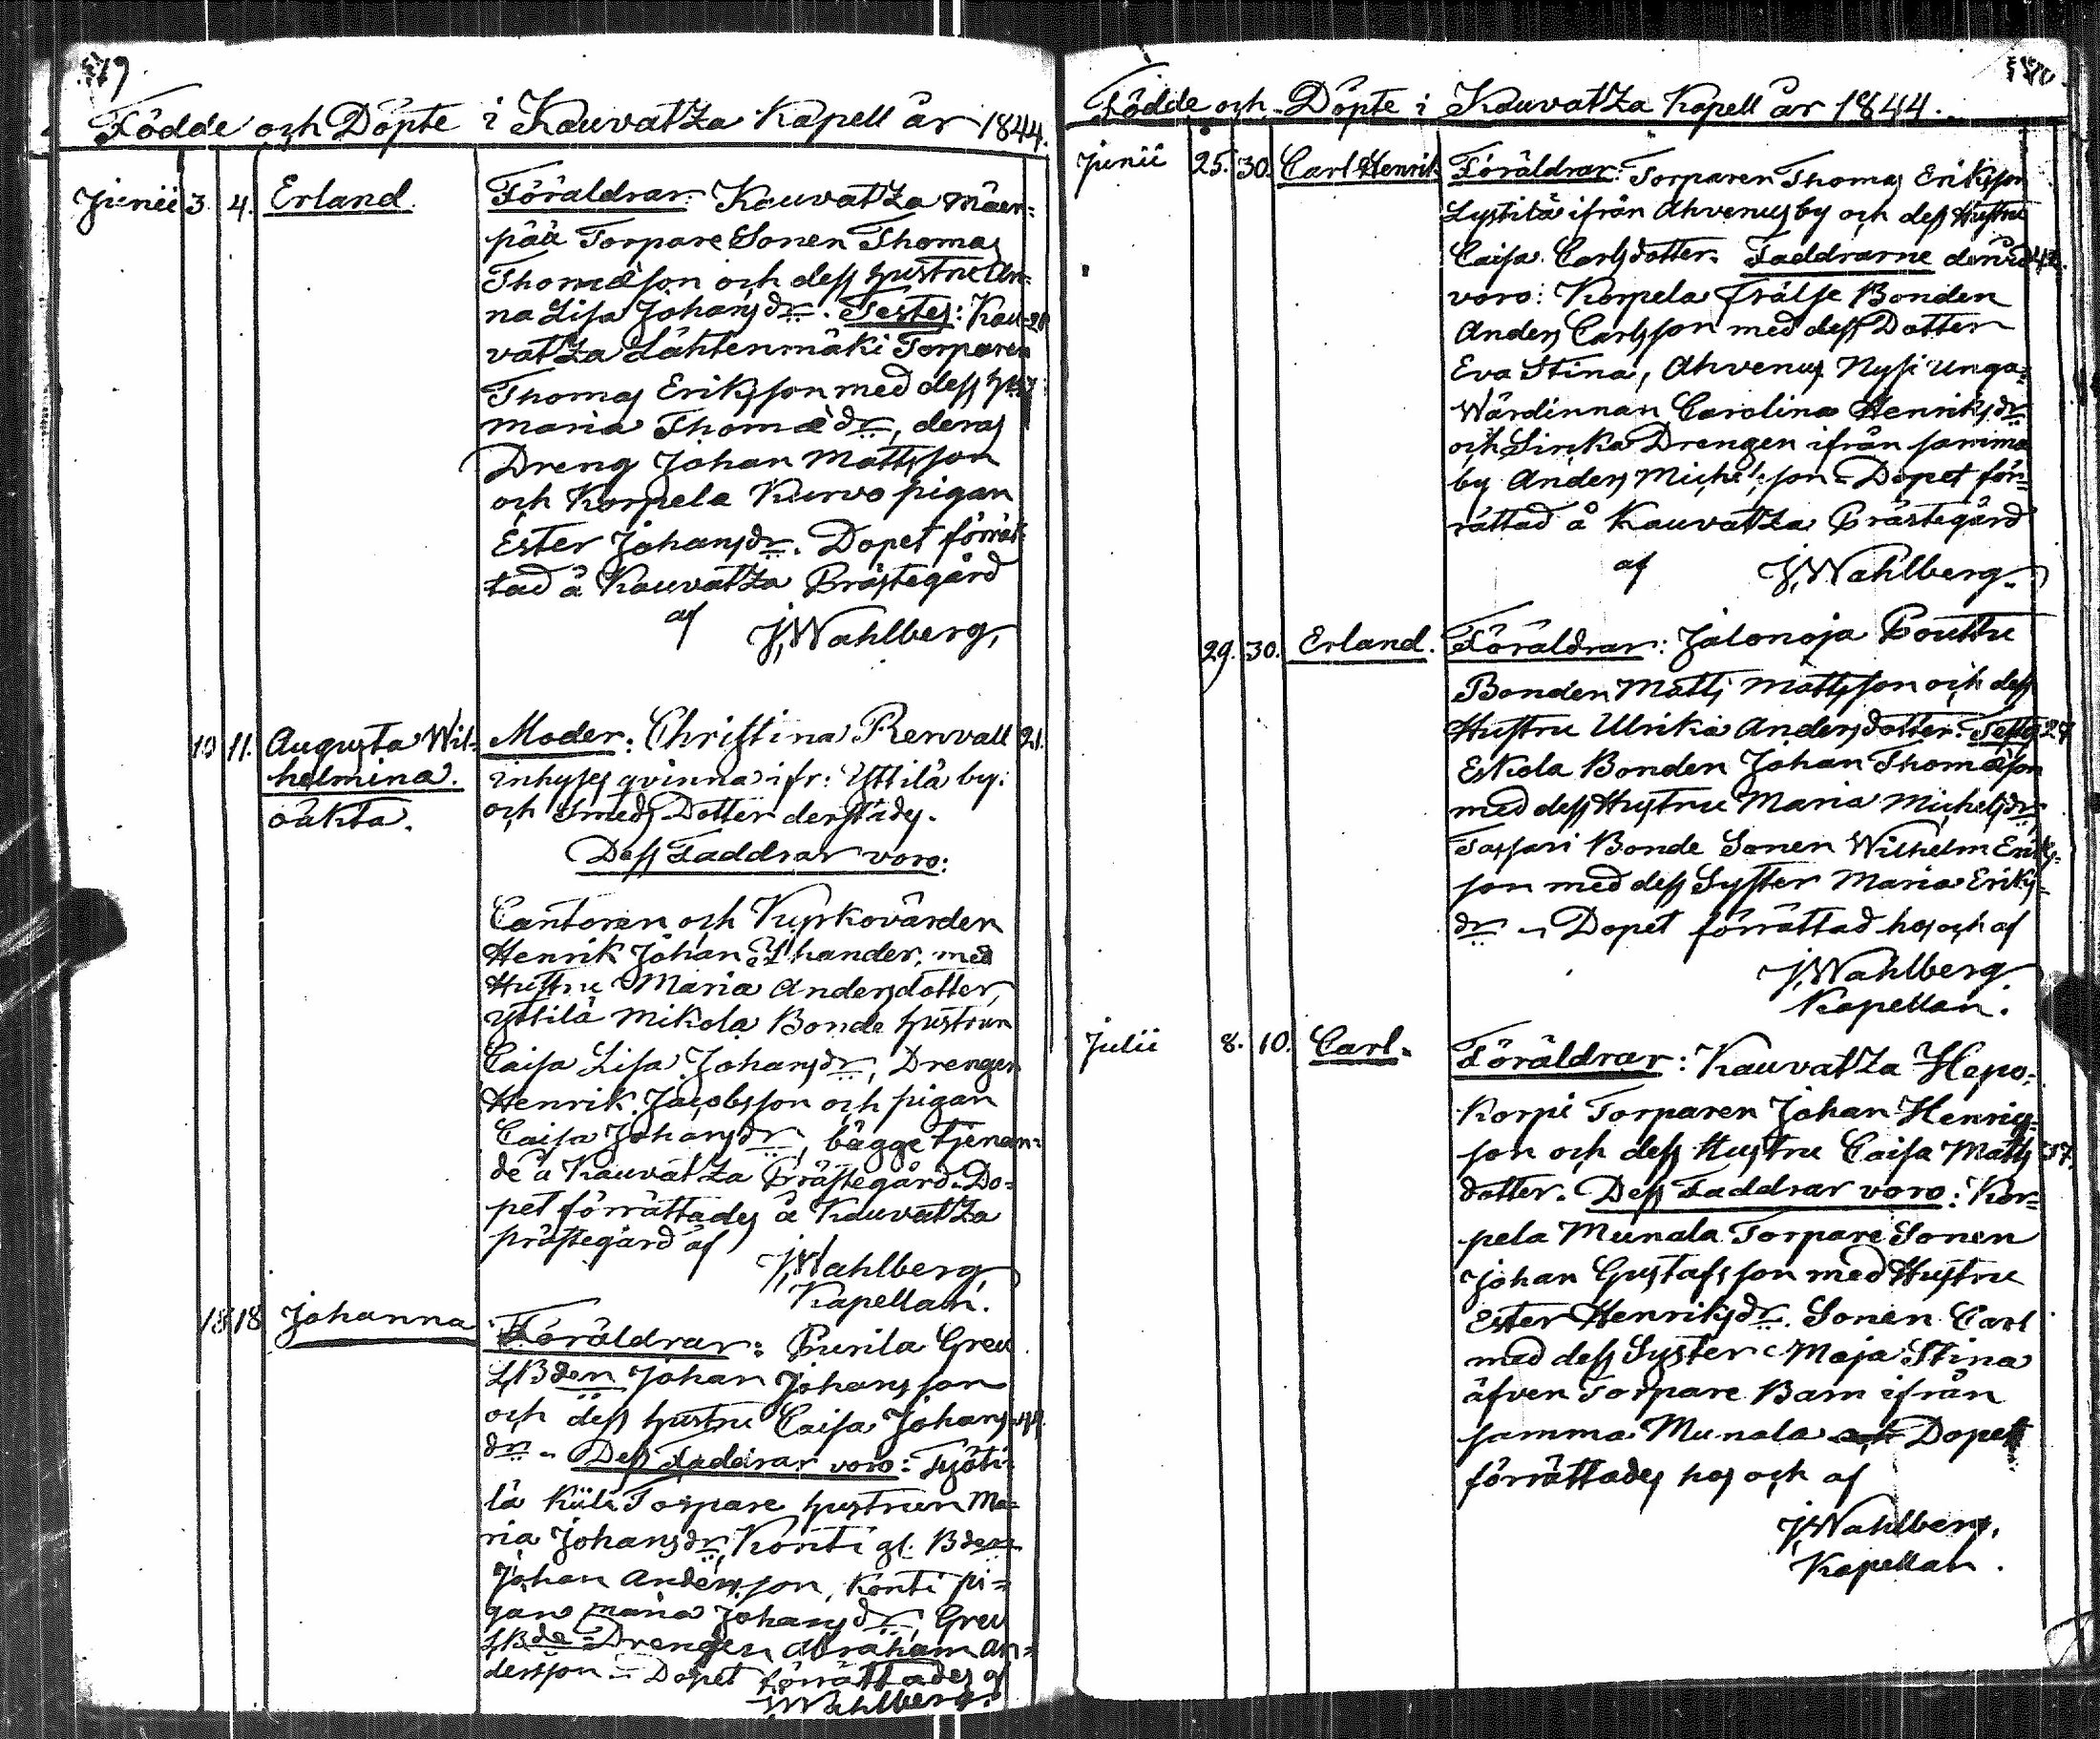 Födde och Döpte i Kauvatza Kapell år 1844.
Junii 3. 4. Erland. Föräldrar: Kauvatza Mäen-
pää Torpare Sonen Thomas
Thomasson och dess hustru An-
na Lisa Johansdr. Testes: Kau-
vatza Lähtenmäki Torparen
Thomas Eriksson med dess
Maria Thomædr, deras
Dreng Johan Mattsson
och Korpela Kurvo pigan
Ester Johansdr. Dopet förrät-
tad å Kauvatza Prästegård
af J. Wahlberg.
10 11. Augusta Wil-
helmina.
oäkta.
Moder: Christina Renvall 21.
inhyses qvinna ifr: Yttilä by.
och Smeds Dotter derstädes.
Dess Faddrar voro:
Cantoren och Kyrkovärden
Henrik Johan med
Hustru Maria Andersdotter,
Yttilä Mikola Bonde hustrun
Caisa Lisa Johansdr, Drengen
Henrik Jacobsson och pigan
Caisa Johansdr, bägge tjenan-
de å Kauvatza Prästegård. Do-
pet förrättades å Kauvatza
prästegård af
J. Wahlberg,
Kapellan.
18 18 Johanna
Föräldrar: Purila Greu
Bden Johan Johansson
och dess hustru Caisa Johans- 44.
dr. Dess Faddrar voro: Työti-
lä Torpare hustrun Ma-
ria Johansdr, Konti gl. Bden
Johan Andersson, Konti pi-
gan Maria Johansdr, Greu
Drengen Abraham An-
dersson. Dopet förrättades af
J. Wahlberg.
Födde och Döpte i Kauvatza Kapell år 1844.
Junii 25. 30. Carl Henrik. Föräldrar: Torparen Thomas Eriksson
Lystilä ifrån Ahvenus by och dess Hustru
Caisa Carlsdotter. Faddrarne dervid 42.
voro: Korpela Frälse Bonden
Anders Carlsson med dess Dotter
Eva Stina, Ahvenus Nysi Unga-
Wärdinnan Carolina Henriksdr
och Sirka Drengen ifrån samma
by Anders Michelsson. Dopet för-
rättad å Kauvatza Prästegård
af J. Wahlberg.
29. 30. Erland. Föräldrar: Jalonoja Pouttu
Bonden Matts Mattsson och dess
Hustru Ulrika Andersdotter. Testes 27
Eskola Bonden Johan Thomæson
med dess Hustru Maria Michelsdr,
Tassari Bonde Sonen Wilhelm Eriks-
son med dess Syster Maria Eriks-
dr. Dopet förrättad hos och af
J. Wahlberg
Kapellan.
Julii 8. 10. Carl. Föräldrar: Kauvatza Hepo-
korpi Torparen Johan Henrics-
son och dess Hustru Caisa Matts 37.
dotter. Dess Faddrar voro: Kor-
pela Munala Torpare Sonen
Johan Gustafsson med Hustru
Ester Henriksdr. Sonen Carl
med dess Syster Maja Stina
äfven Torpare Barn ifrån
samma Munala Dopet
förrättades hos och af
J. Wahlberg.
Kapellan.